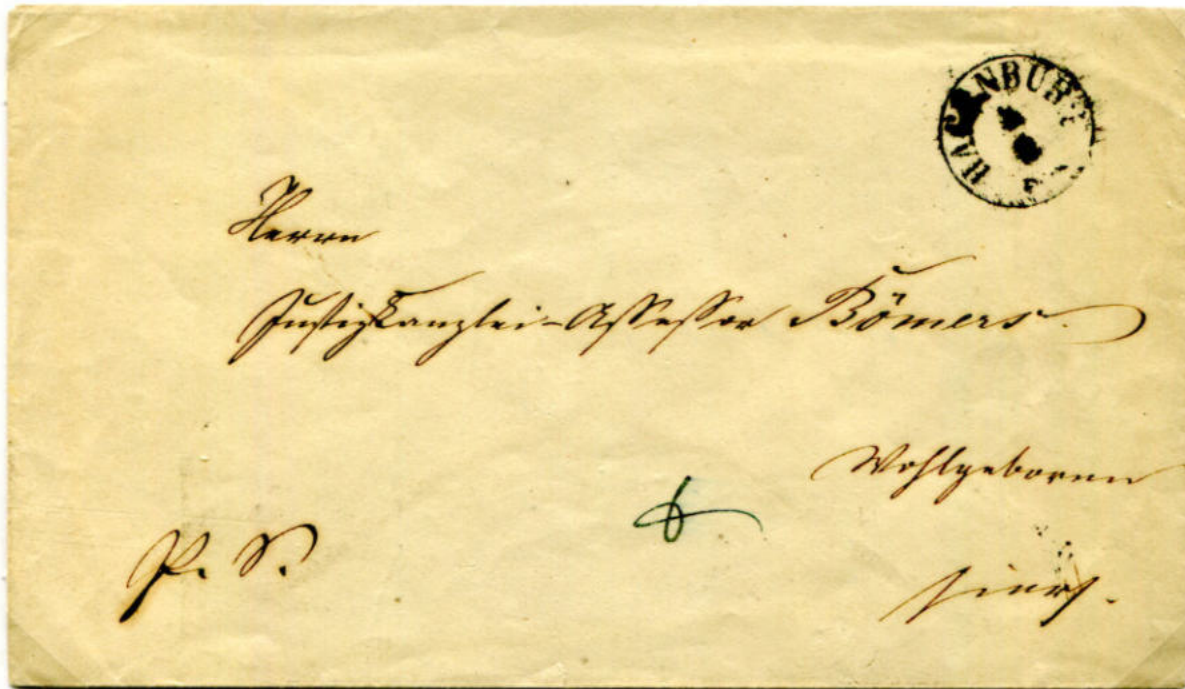 HACHENBURG
Herrn
Justizkanzlei-Assessor Bömers.
Wohlgeboren
P. S.
6